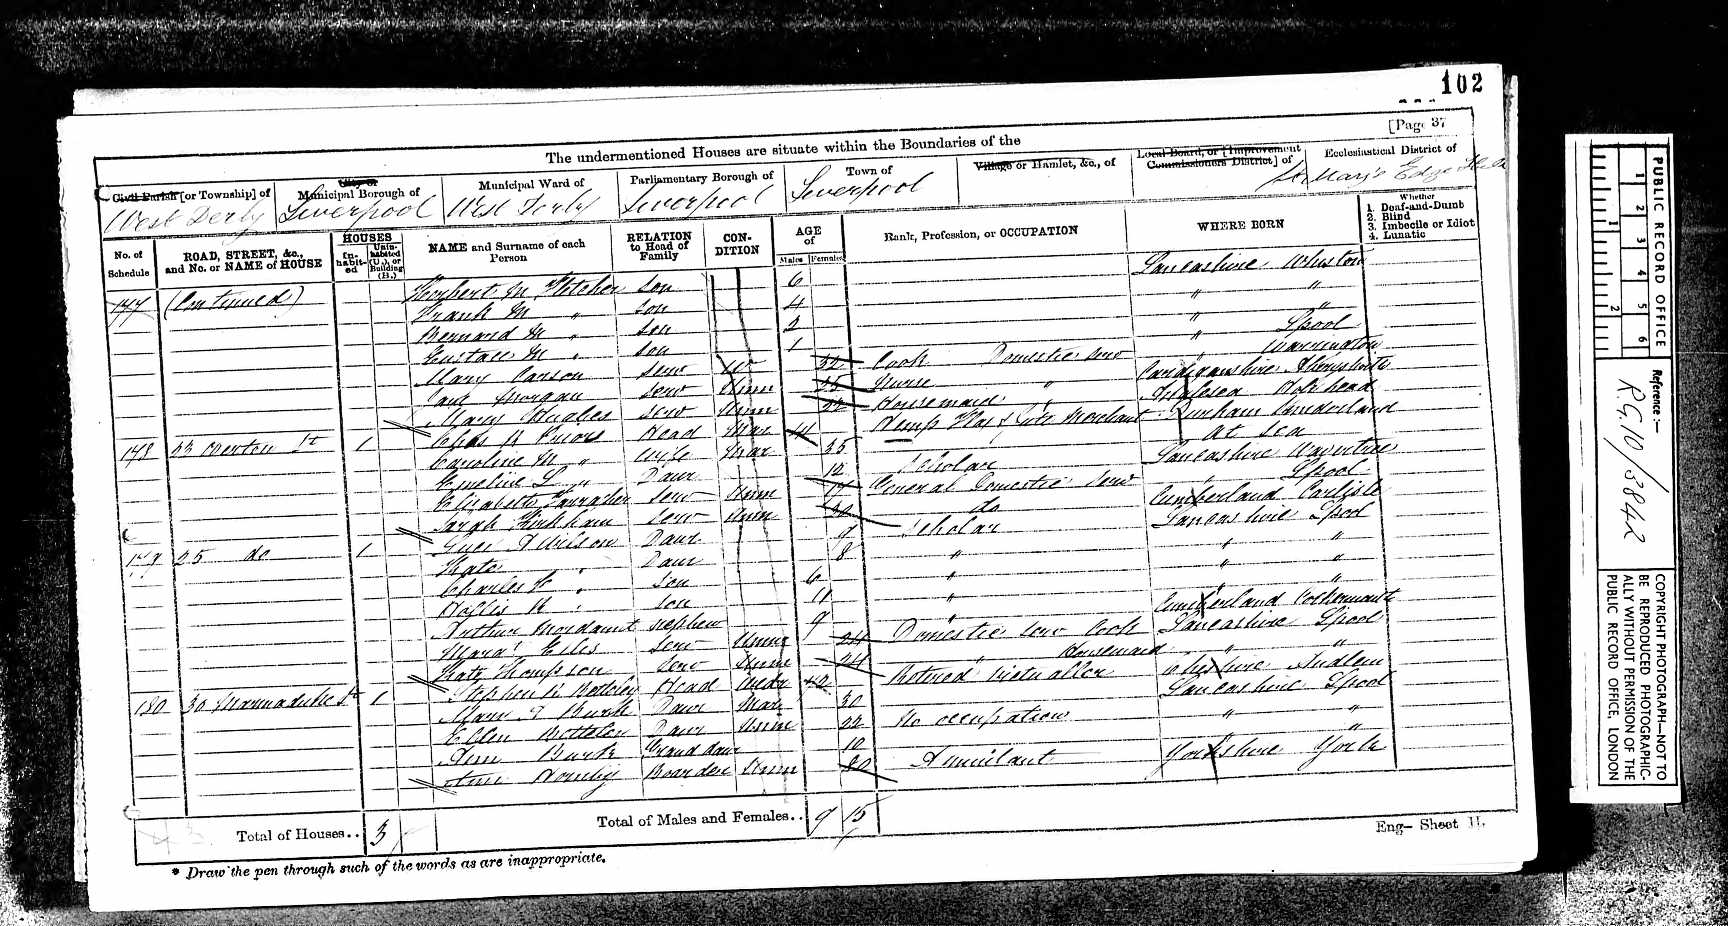 102
[Page 37
The undermentioned Houses are situate within the Boundaries of the
Civil Parish [or Township] of
City or Municipal Borough of
Municipal Ward of
Parliamentary Borough of
Town of
Village or Hamlet, &c., of
Local Board, or [Improvement Commissioners District] of
Ecclesiastical District of
West Derby Liverpool West Derby Liverpool Liverpool St Mary's Edge Hill
No. of Schedule
ROAD, STREET, &c., and No. or NAME of HOUSE
HOUSES
In-habit-ed
Unin-habited (U.), or Building (B.)
NAME and Surname of each Person
RELATION to Head of Family
CON-DITION
AGE of
Males Females
Rank, Profession, or OCCUPATION
WHERE BORN
Whether
1. Deaf-and-Dumb
2. Blind
3. Imbecile or Idiot
4. Lunatic
147 (Continued) Herbert M Fletcher Son 6 Lancashire Whiston
Frank M " Son 4 " "
Bernard M " Son 2 " "
Eustace M " Son 1 " Lpool
Mary Carson Serv W 32 Cook Domestic Serv Warrington
Jane Morgan Serv Unm 25 Nurse " Cardiganshire
Mary Hughes Serv Unm 22 Housemaid " Holyhead
148 23 Overton St 1 Chas Head Mar Hemp Flax Merchant Durham Sunderland
Caroline M " Wife Mar 35 At Sea
Emeline L " Daur 12 Scholar Lancashire Wavertree
Elizabeth Serv Unm 17 General Domestic Serv Lpool
Sarah Kirkham Serv Unm 20 do Cumberland Carlisle
149 25 do 1 Daur 9 Scholar Lancashire Lpool
Kate " Daur 8 " " "
Charles " Son 6 " " "
Son 11 " " "
Arthur Mordaunt Nephew 9 " Cumberland
Serv Unm 24 Domestic Serv Cook Lancashire Lpool
Kate Thompson Serv Unm 24 " Housemaid " "
180 30 Marmaduke St 1 Stephen Head Retired Victualler Cheshire Audlem
Burk Daur Mar 30 Lancashire Lpool
Ellen Daur Unm 22 No occupation " "
Ann Burk Grand daur 10 "
Ann Hornby Boarder Unm 80 Annuitant Yorkshire York
Total of Houses.. 3
Total of Males and Females.. 9 15
Eng- Sheet H.
* Draw the pen through such of the words as are inappropriate.
PUBLIC RECORD OFFICE
1 2 3 4 5 6
1 2
Reference:-
R.G. 10/3842
COPYRIGHT PHOTOGRAPH—NOT TO BE REPRODUCED PHOTOGRAPHICALLY WITHOUT PERMISSION OF THE PUBLIC RECORD OFFICE, LONDON